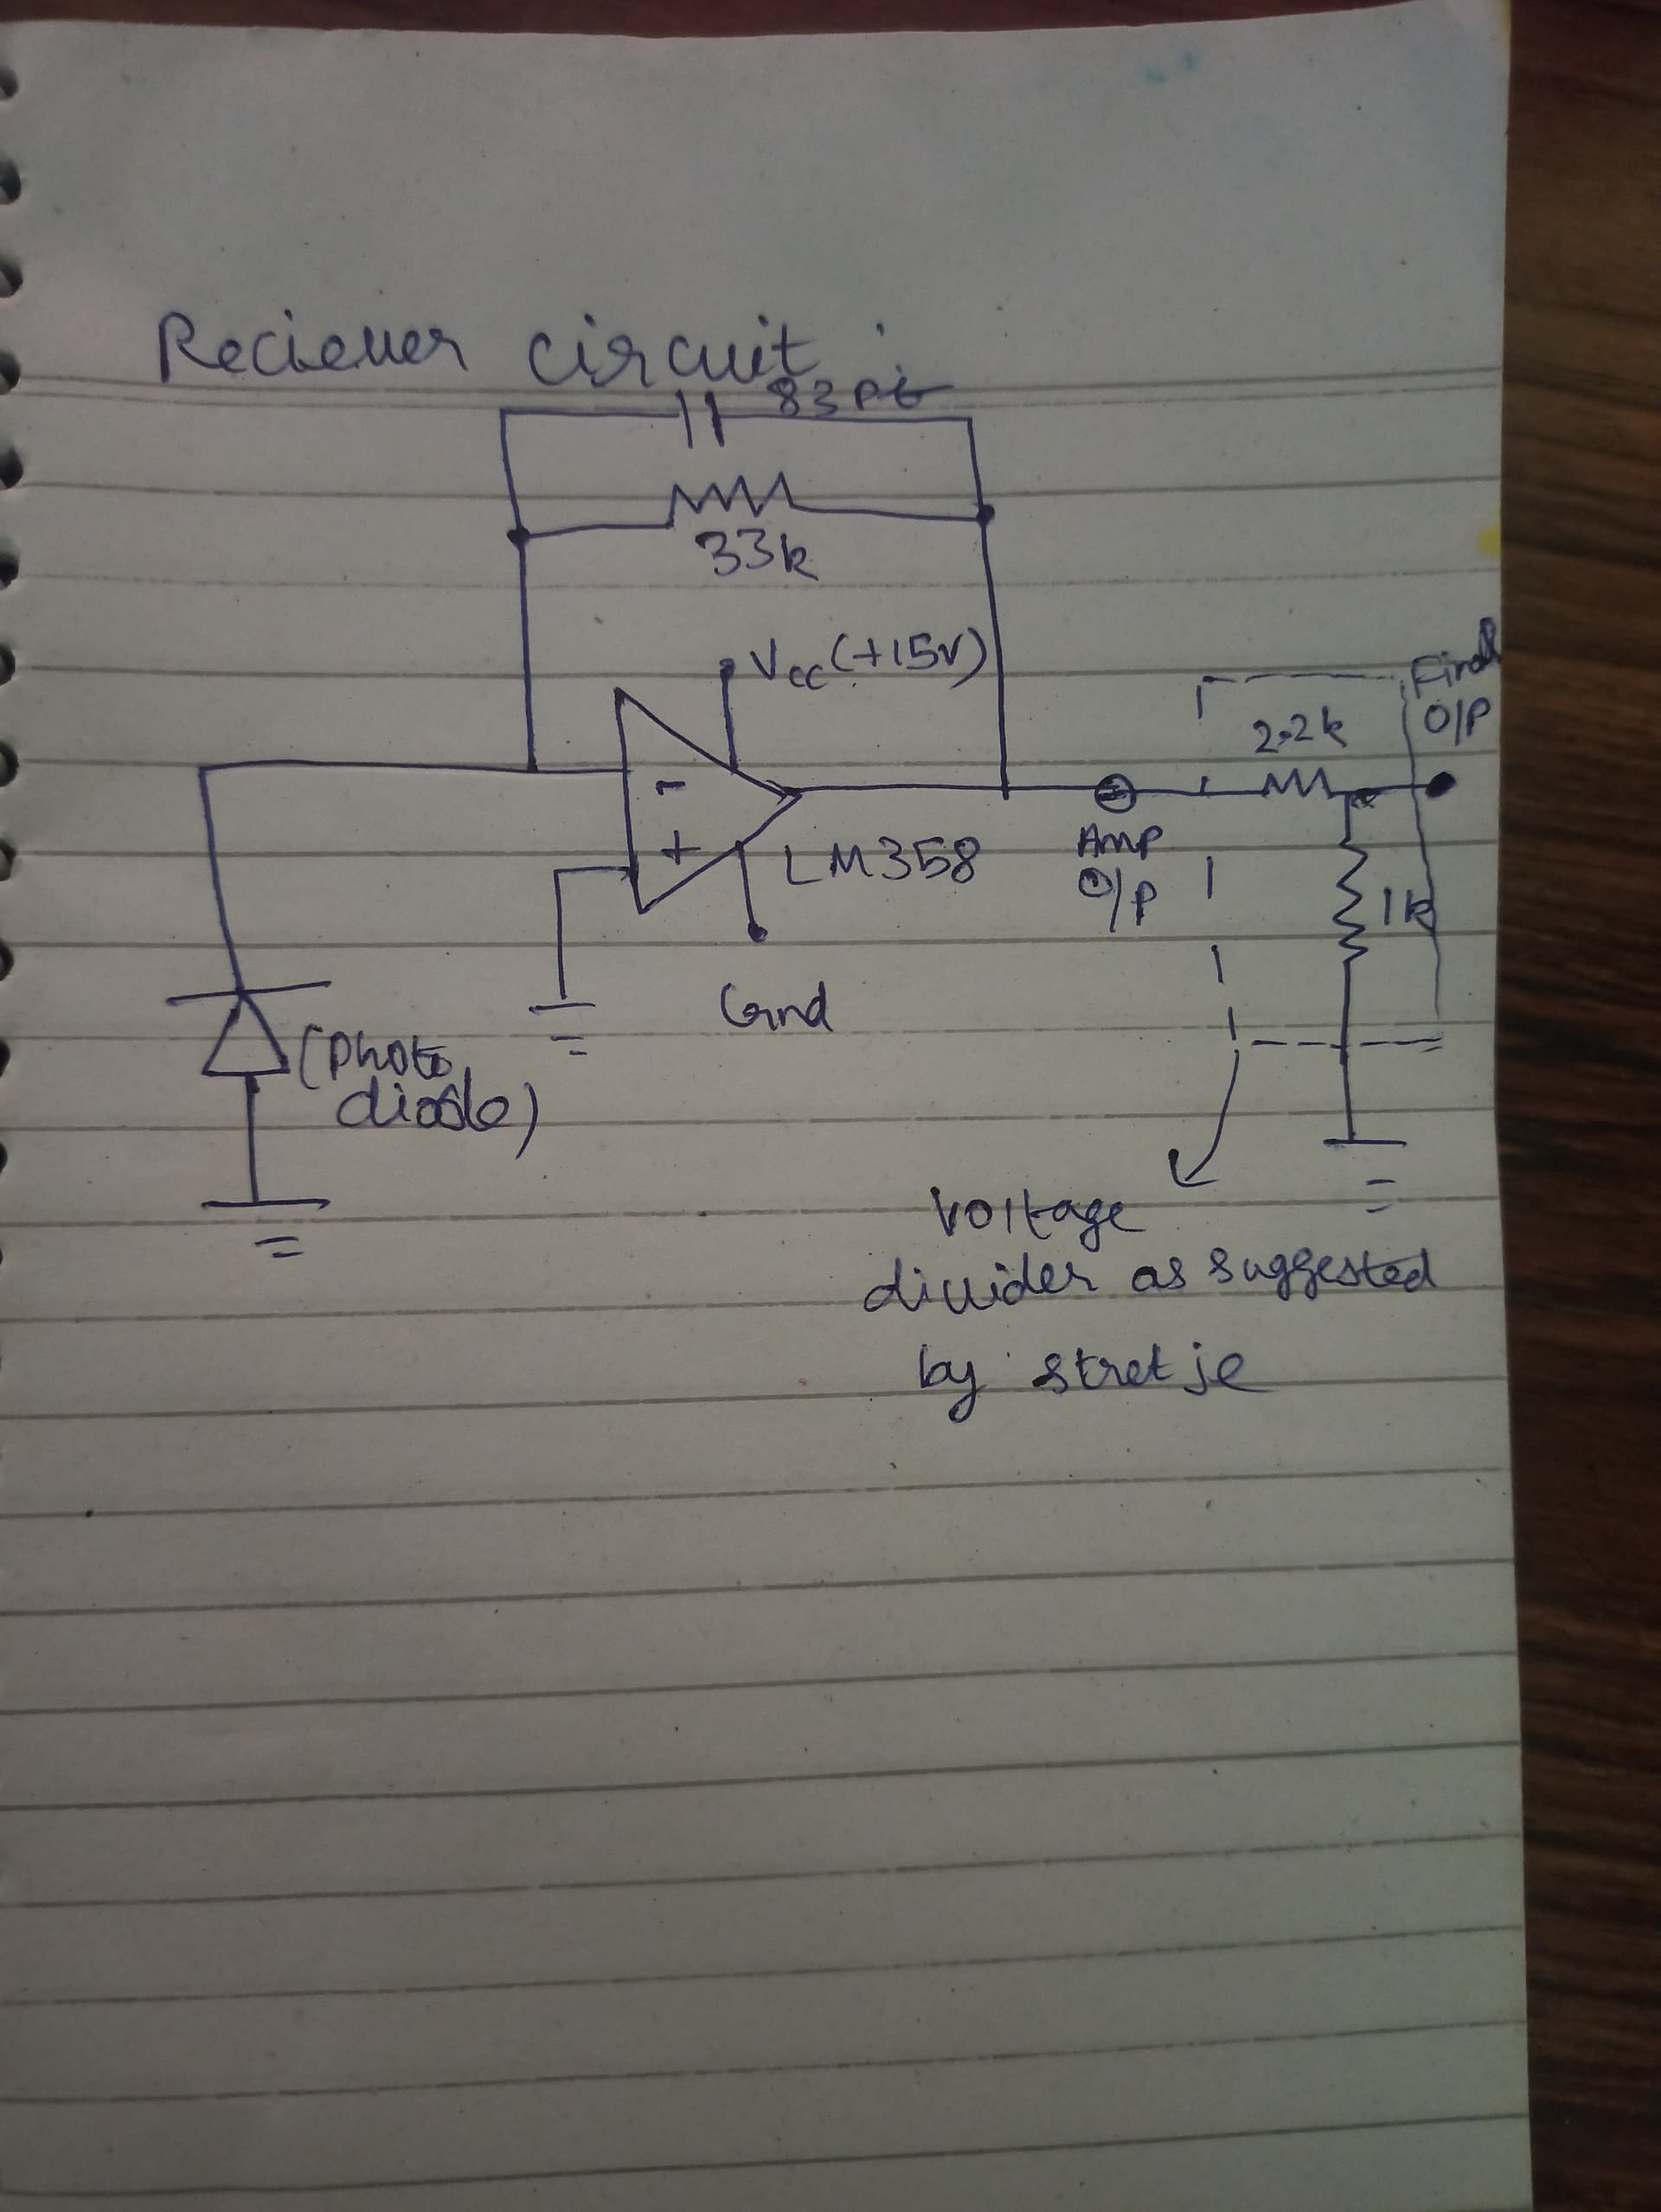 Reciever circuit :
83 pF
33k
Vcc (+15V)
-
+
LM358
Gnd
(Photo
diode)
Amp
O/P
2.2k
1k
Final
O/P
Voltage
divider as suggested
by stretje